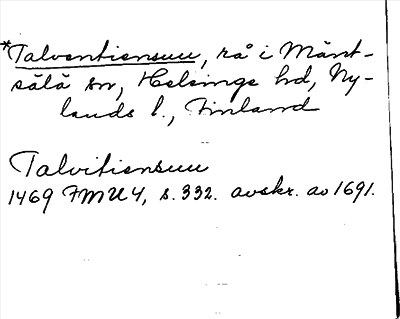 *Talventiensuu, rå i Mänt-
sälä sn, Helsinge hd, Ny-
lands l., Finland
Talvitiensuu
1469 FMU 4, s. 332. avskr. av 1691.